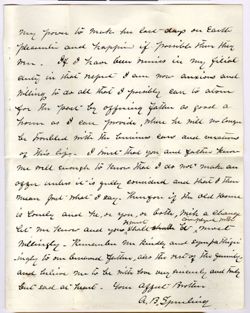 my power to make his last days on Earth
pleasant and happier if possible than they
were. If I have been remiss in my filial
duty in that respect I am now anxious and
willing to do all that I possibly can to atone
for the past by offering father as good a
home as I can provide, where he will no longer
be troubled with the business cares and vexations
of this life. I trust that you and father know
me well enough to know that I do not make an
offer unless it is guilty considered and that I then
mean just what I say. Therefore if the old home
is lonely and he, or you, or both, wish a change
let me know and you shall most
willingly. Remember me kindly and sympathizingly
to our bereaved father, also the rest of the family
and believe me to be with love very sincerely and truly
but sad at heart. Your Affect Brother
A. B. Spurling